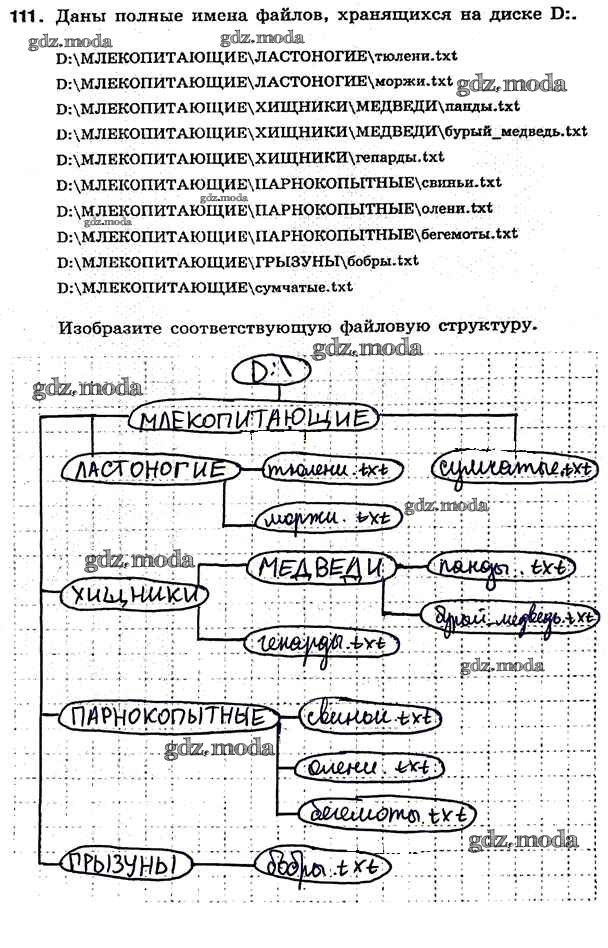 111. Даны полные имена файлов, хранящихся на диске D:.
gdz.moda gdz.moda
D:\МЛЕКОПИТАЮЩИЕ\ЛАСТОНОГИЕ\тюлени.txt
D:\МЛЕКОПИТАЮЩИЕ\ЛАСТОНОГИЕ\моржи.txt gdz.moda
D:\МЛЕКОПИТАЮЩИЕ\ХИЩНИКИ\МЕДВЕДИ\панды.txt
D:\МЛЕКОПИТАЮЩИЕ\ХИЩНИКИ\МЕДВЕДИ\бурый_медведь.txt
D:\МЛЕКОПИТАЮЩИЕ\ХИЩНИКИ\гепарды.txt
D:\МЛЕКОПИТАЮЩИЕ\ПАРНОКОПЫТНЫЕ\свиньи.txt
gdz.moda
D:\МЛЕКОПИТАЮЩИЕ\ПАРНОКОПЫТНЫЕ\олени.txt
gdz.moda
D:\МЛЕКОПИТАЮЩИЕ\ПАРНОКОПЫТНЫЕ\бегемоты.txt
D:\МЛЕКОПИТАЮЩИЕ\ГРЫЗУНЫ\бобры.txt
D:\МЛЕКОПИТАЮЩИЕ\сумчатые.txt
Изобразите соответствующую файловую структуру.
gdz.moda
D:\
gdz.moda
МЛЕКОПИТАЮЩИЕ
ЛАСТОНОГИЕ тюлени.txt сумчатые.txt
моржи.txt gdz.moda
gdz.moda
МЕДВЕДИ панды.txt
ХИЩНИКИ
бурый_медведь.txt
гепарды.txt
gdz.moda
ПАРНОКОПЫТНЫЕ свиньи.txt
gdz.moda
олени.txt
бегемоты.txt
gdz.moda
ГРЫЗУНЫ бобры.txt